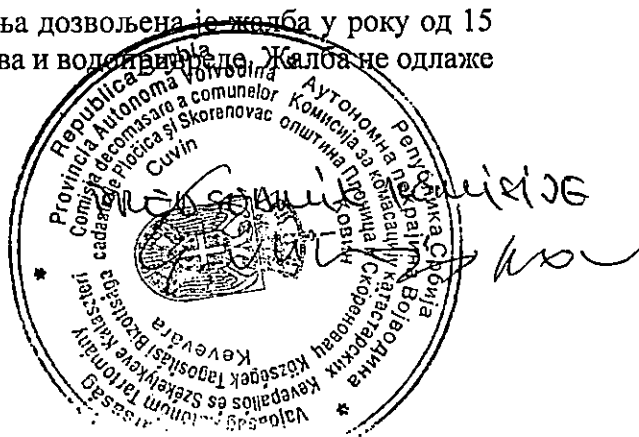 ња дозвољена је жалба у року од 15
ва и водопривреде. Жалба не одлаже
Republica Serbia
Provincia Autonoma Voivodina
Comisia de comasare a comunelor
cadastrale Pločica şi Skorenovac
Cuvin
Република Србија
Аутономна покрајина Војводина
Комисија за комасацију катастарских
општина Плочица и Скореновац
Ковин
Vajdaság Autonóm Tartomány
Kevepallos és Székelykeve Kataszteri
Községek Tagosítási Bizottsága
Kevevára
PREDSEDNIK KOMISIJE